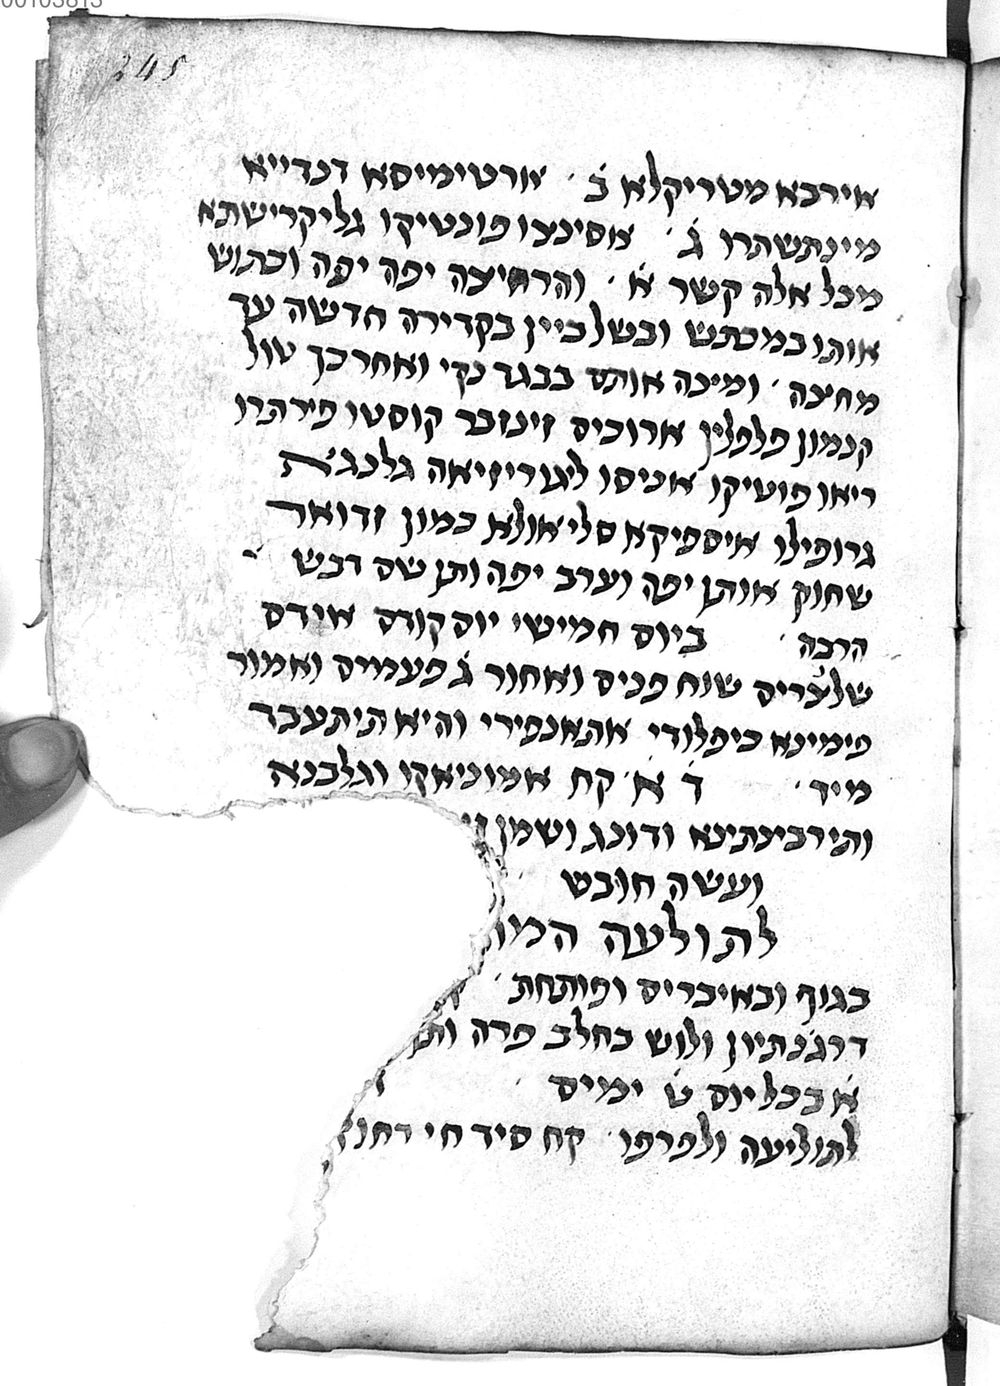 00103813
245
אירבא מטריקלא ב׳ ארטימיסא דנדייא
מינתשתרו ג׳ אסינצו פונטיקו גליקרישתא
מכל אלה קשר א׳ והרחיצה יפה יפה וכתוש
אותו במכתש ובשל ביין בקדירה חדשה עד
מחצה׳ ומיכה אותם בבגד נקי ואחר כך טול
קנמון פלפלין ארוכים זינזבר קוסטו פירתרו
ריאו פוטיקו אניסו ליגוריזיאה גלנגאת
גרופילו איספיקא סליאולא כמון זדואר
שחוק אותן יפה וערב יפה ותן שם דבש
הרבה׳ ביום חמישי יום קודם אידם
שלצרים שוח פנים ואחור ג׳ פעמים ואמור
פימינא כיפלודי אתאנפירי והיא תיתעבר
מיד׳ ד׳ א׳ קח אמוניאקו וגלבנה
ותירבינתינא ודונג ושמן
ועשה חובט
לתולעה
בגוף ובאיברים ופותחת׳
דרגנתיון ולוש בחלב פרה
א׳ בכל יום ט׳ ימים
לתוליעה ולפרפו׳ קח סיד חי